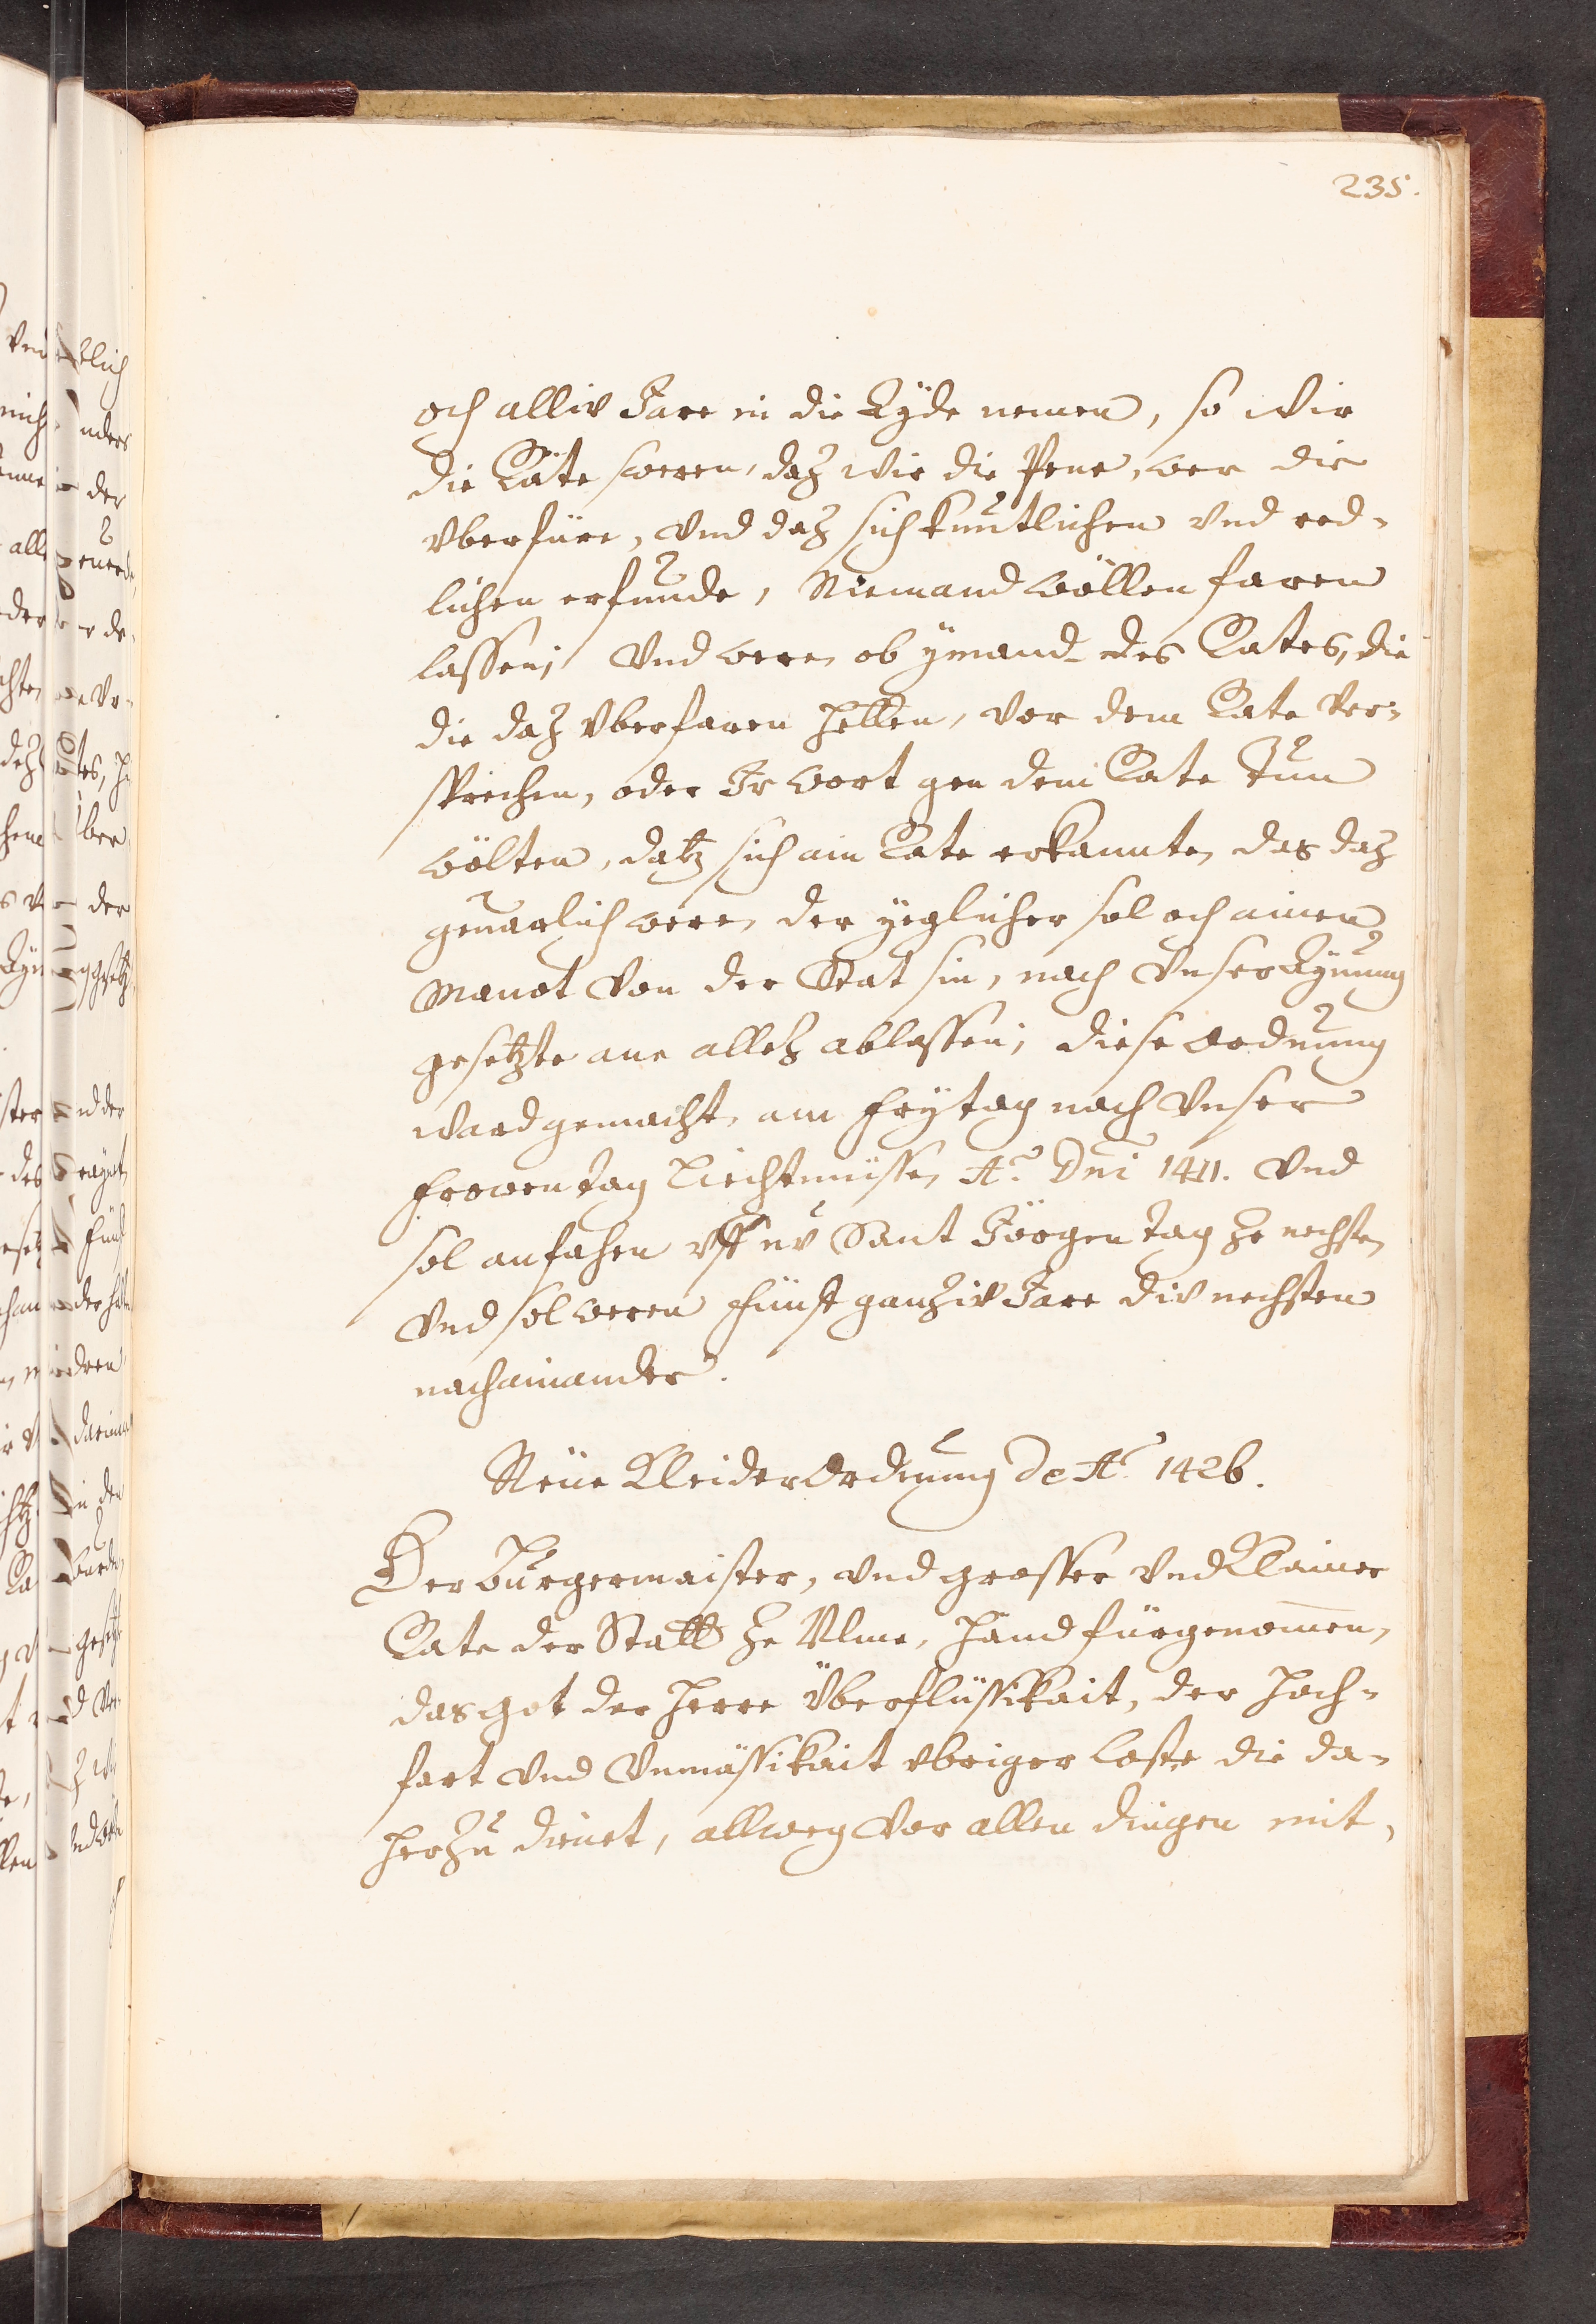 235.
och alliv Jare in die Eÿde nemen, so wir
die Räte sweren, daz wir die Pene, wer die
vberfüre, vnd daz sich kuntlichen vnd red-
lichen erfunde, Niemand wöllen faren
lassen; Vnd were, ob ÿmand des Rates, die
die daz vberfaren hetten, vor dem Rate Ver-
sprechen, oder Ir wort gen dem Rate Tun
wölten, datz sich ain Rate erkannte, das daz
geuarlich were, der ÿeglicher sol och ainen
Manot von der Stat sin, nach Vnser Aÿnung
gesetzte ane allez ablassen; diese Ordnung
ward gemacht, am Frÿtag nach Vnser
Frowen Tag Liechtmisse, Ao. Dni 1411. Vnd
sol anfahen vff nv Sant Jörgen Tag ze nechste,
Vnd sol weren fünff ganziv Jare div nechsten
nachainander.
Neüe Kleider Ordnung de Ao. 1426.
Der Burgermaister, vnd grosser Vnd Klainer
Rate der Statt ze Ulme, Hand fürgenomen,
das Got der Herre Überflüssikait, der Hoch-
fart Vnd Vnmässikait vbriger Coste die da-
herzu dienet, allweg Vor allen dingen mit,